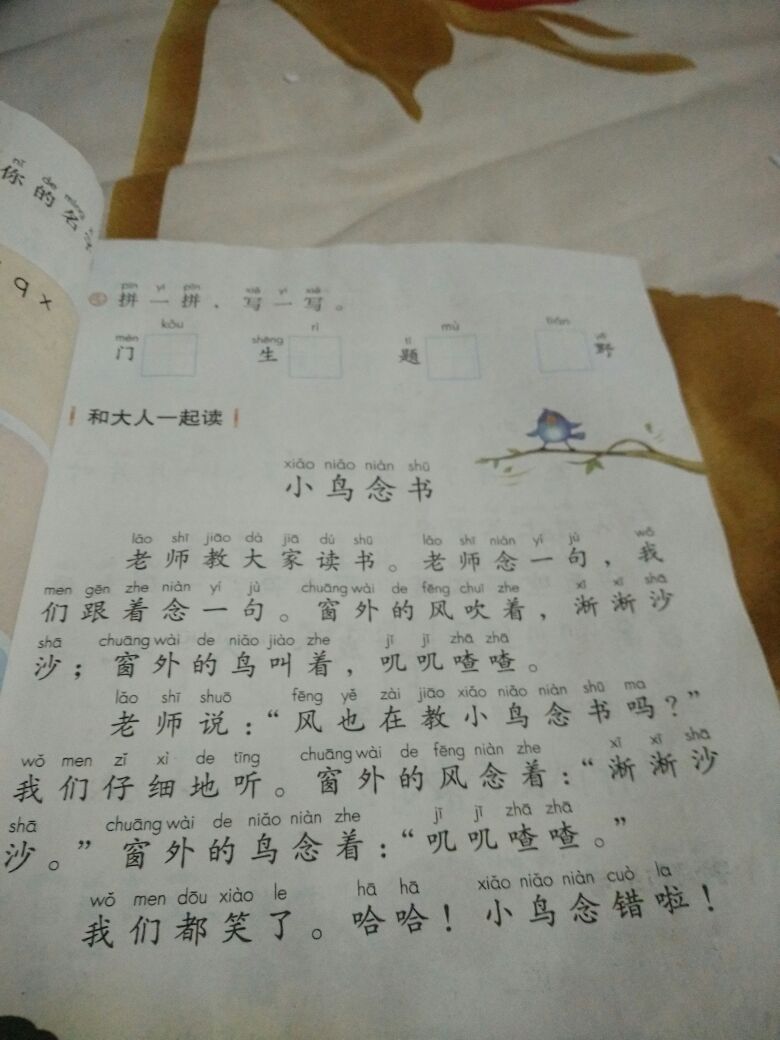 nǐ de míng
你的名
pīn yi pīn xiě yi xiě
拼一拼，写一写。
kǒu rì mù tián
mén shēng tí yě
门 生 题 野
和大人一起读
xiǎo niǎo niàn shū
小鸟念书
lǎo shī jiāo dà jiā dú shū lǎo shī niàn yí jù wǒ
老师教大家读书。老师念一句，我
men gēn zhe niàn yí jù chuāng wài de fēng chuī zhe xī xī shā
们跟着念一句。窗外的风吹着，淅淅沙
shā chuāng wài de niǎo jiào zhe jī jī zhā zhā
沙；窗外的鸟叫着，叽叽喳喳。
lǎo shī shuō fēng yě zài jiāo xiǎo niǎo niàn shū ma
老师说：“风也在教小鸟念书吗？”
wǒ men zǐ xì de tīng chuāng wài de fēng niàn zhe xī xī shā
我们仔细地听。窗外的风念着：“淅淅沙
shā chuāng wài de niǎo niàn zhe jī jī zhā zhā
沙。”窗外的鸟念着：“叽叽喳喳。”
wǒ men dōu xiào le hā hā xiǎo niǎo niàn cuò la
我们都笑了。哈哈！小鸟念错啦！